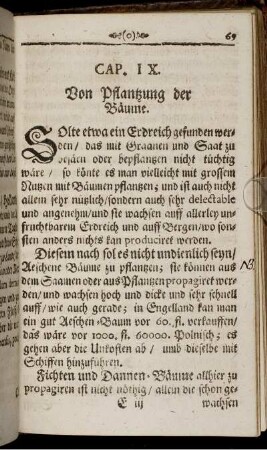 (o) 69
CAP. IX.
Von Pflantzung der
Bäume.
SOlte etwa ein Erdreich gefunden wer-
den/ das mit Graanen und Saat zu
besäen oder bepflantzen nicht tüchtig
wäre/ so könte es man vielleicht mit grossem
Nutzen mit Bäumen pflantzen; und ist auch nicht
allein sehr nützlich/sondern auch sehr delectable
und angenehm/und sie wachsen auff allerley un-
fruchtbarem Erdreich und auff Bergen/wo son-
sten anders nichts kan produciret werden.
Diesem nach sol es nicht undienlich seyn/
Aeschene Bäume zu pflantzen; sie können aus
dem Saamen oder aus Pflantzen propagiret wer-
den/ und wachsen hoch und dicke und sehr schnell
auff/ wie auch gerade; in Engelland kan man
ein gut Aeschen-Baum vor 60. fl. verkauffen/
das wäre vor 1000. fl. 60000. Polnisch; es
gehen aber die Unkosten ab/ umb dieselbe mit
Schiffen hinzuführen.
Fichten und Dannen-Bäume allhier zu
propagiren ist nicht nöthig/ allein die schon ge-
E iij wachsen
NB